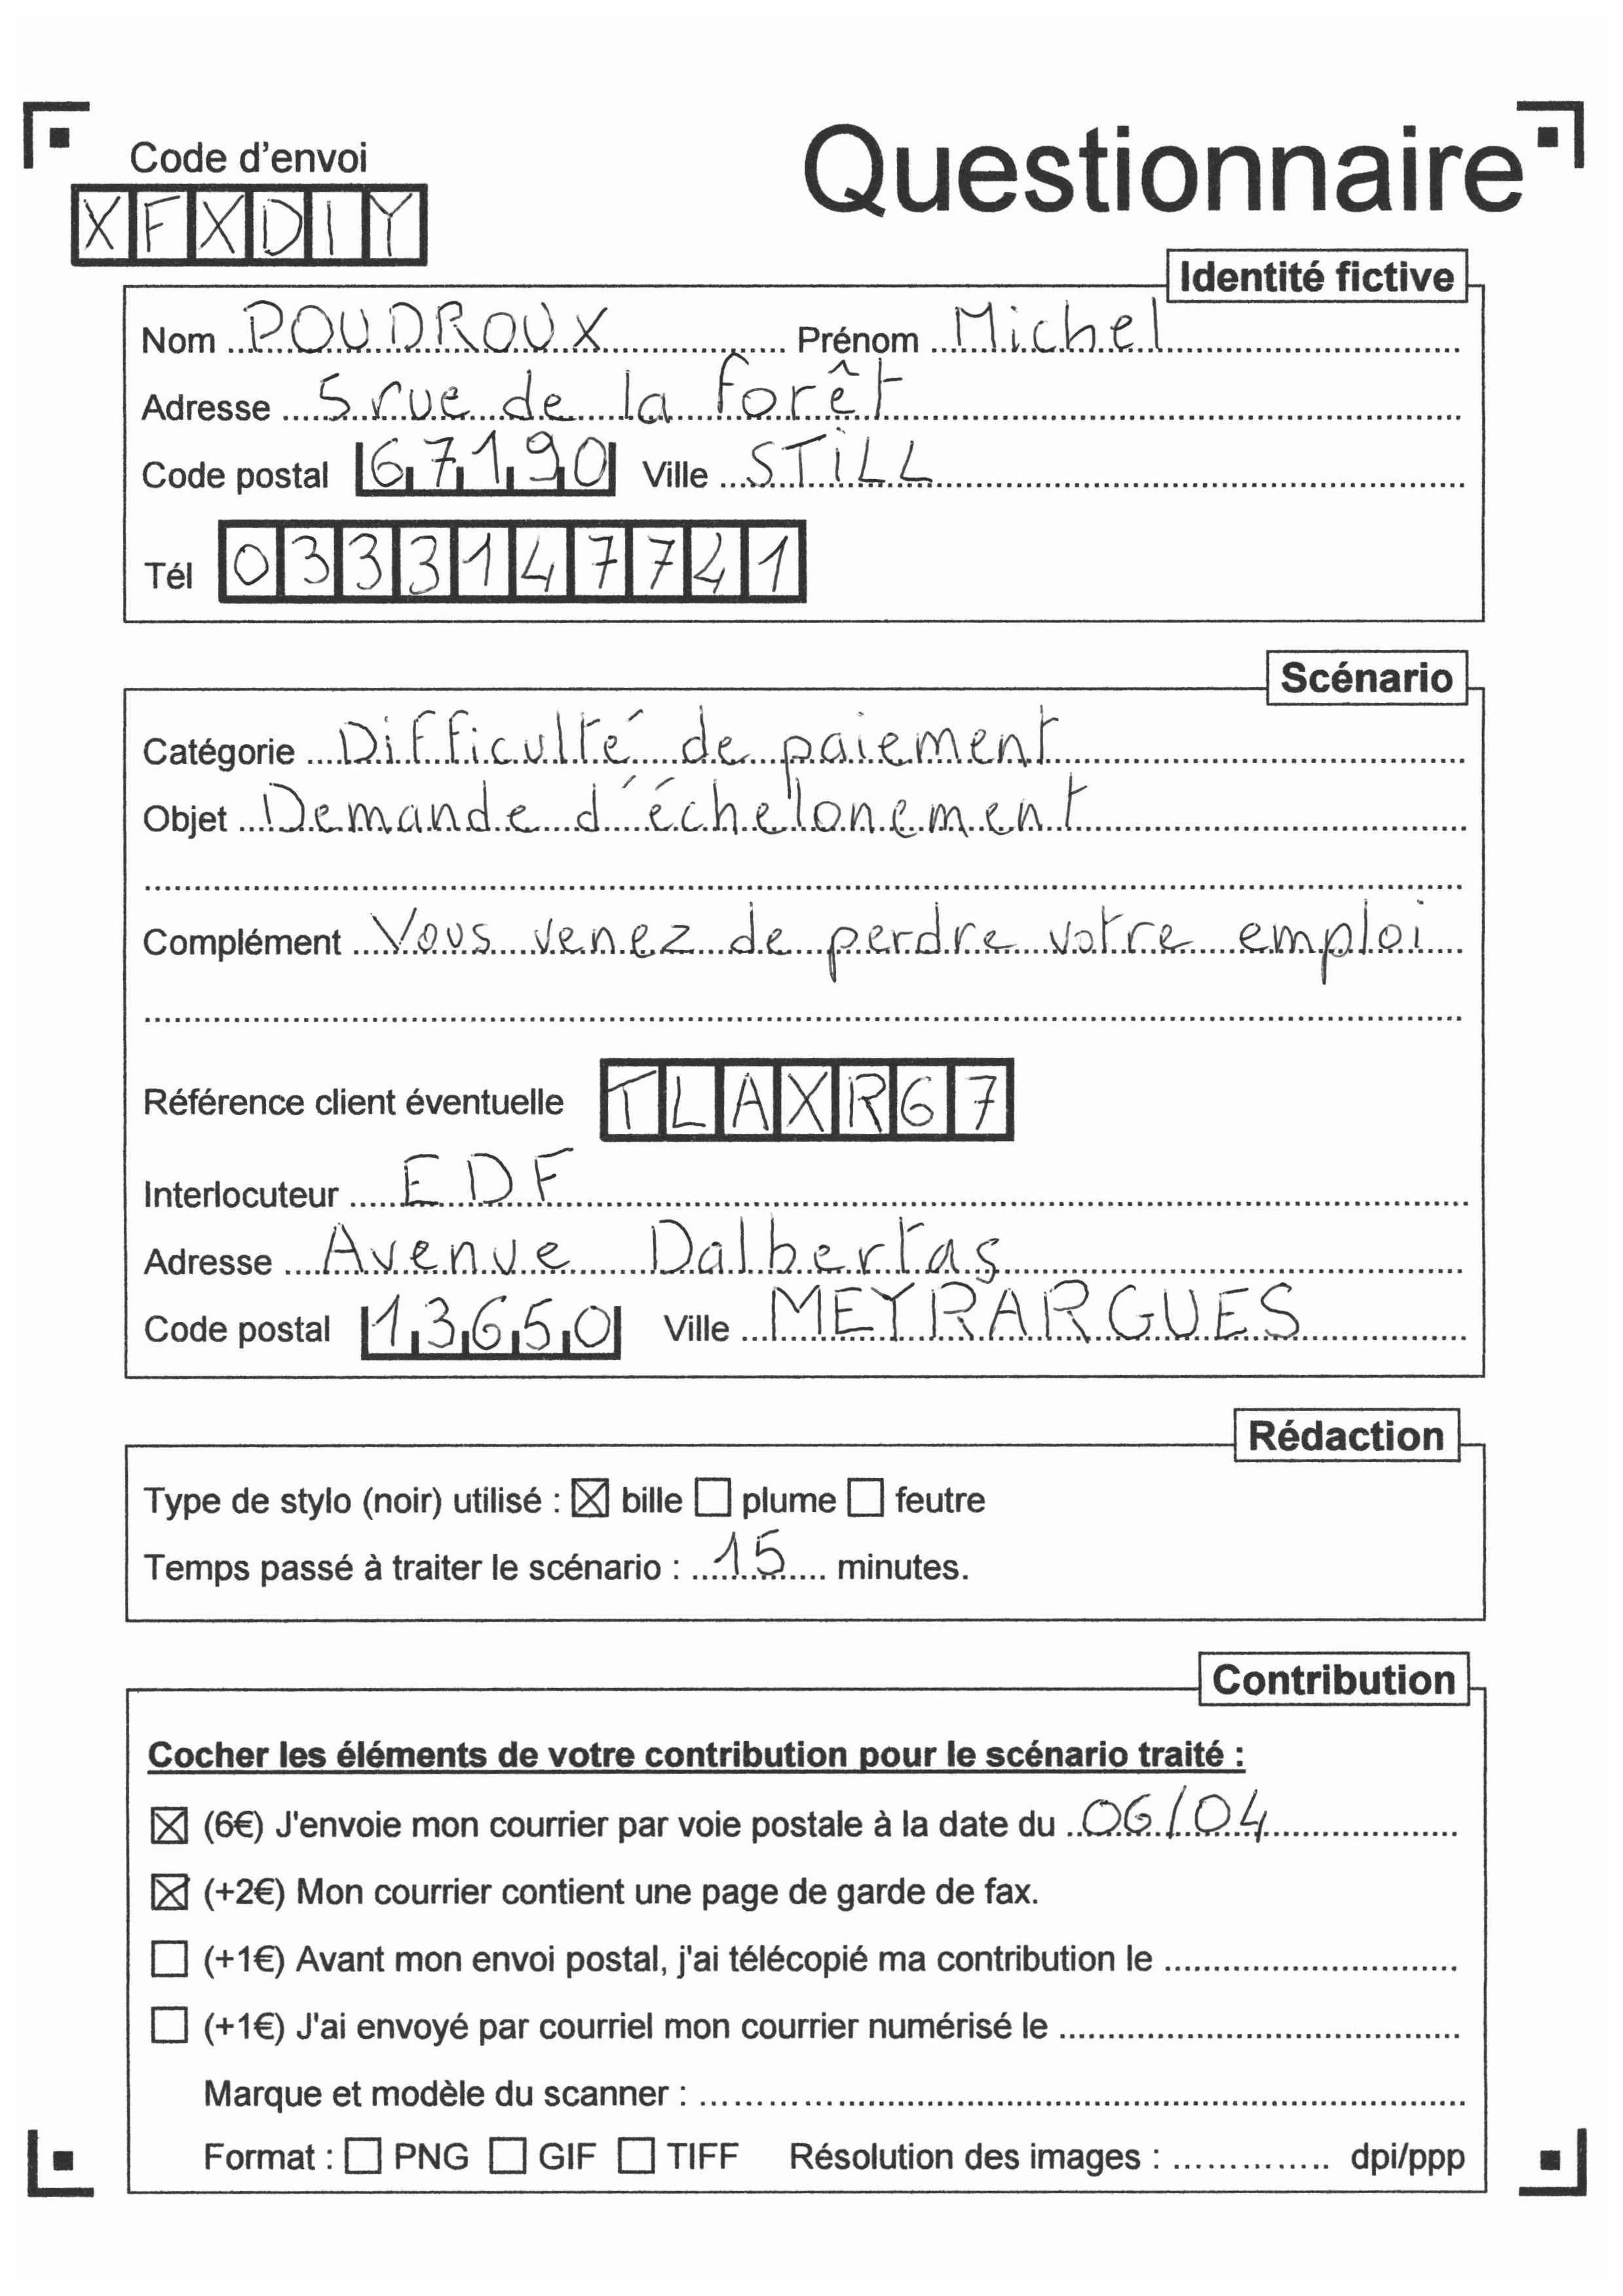 Questionnaire
Code d'envoi
XFXDIY
Identité fictive
Nom POUDROUX Prénom Michel
Adresse 5 rue de la forêt
Code postal 67190 Ville STILL
Tél 0333147741
Scénario
Catégorie Difficulté de paiement
Objet Demande d'échelonement
Complément Vous venez de perdre votre emploi
Référence client éventuelle TLAXR67
Interlocuteur EDF
Adresse Avenue Dalbertas
Code postal 13650 Ville MEYRARGUES
Rédaction
Type de stylo (noir) utilisé : ☒ bille ☐ plume ☐ feutre
Temps passé à traiter le scénario : 15 minutes.
Contribution
Cocher les éléments de votre contribution pour le scénario traité :
☒ (6€) J'envoie mon courrier par voie postale à la date du 06/04
☒ (+2€) Mon courrier contient une page de garde de fax.
☐ (+1€) Avant mon envoi postal, j'ai télécopié ma contribution le
☐ (+1€) J'ai envoyé par courriel mon courrier numérisé le
Marque et modèle du scanner :
Format : ☐ PNG ☐ GIF ☐ TIFF Résolution des images : dpi/ppp